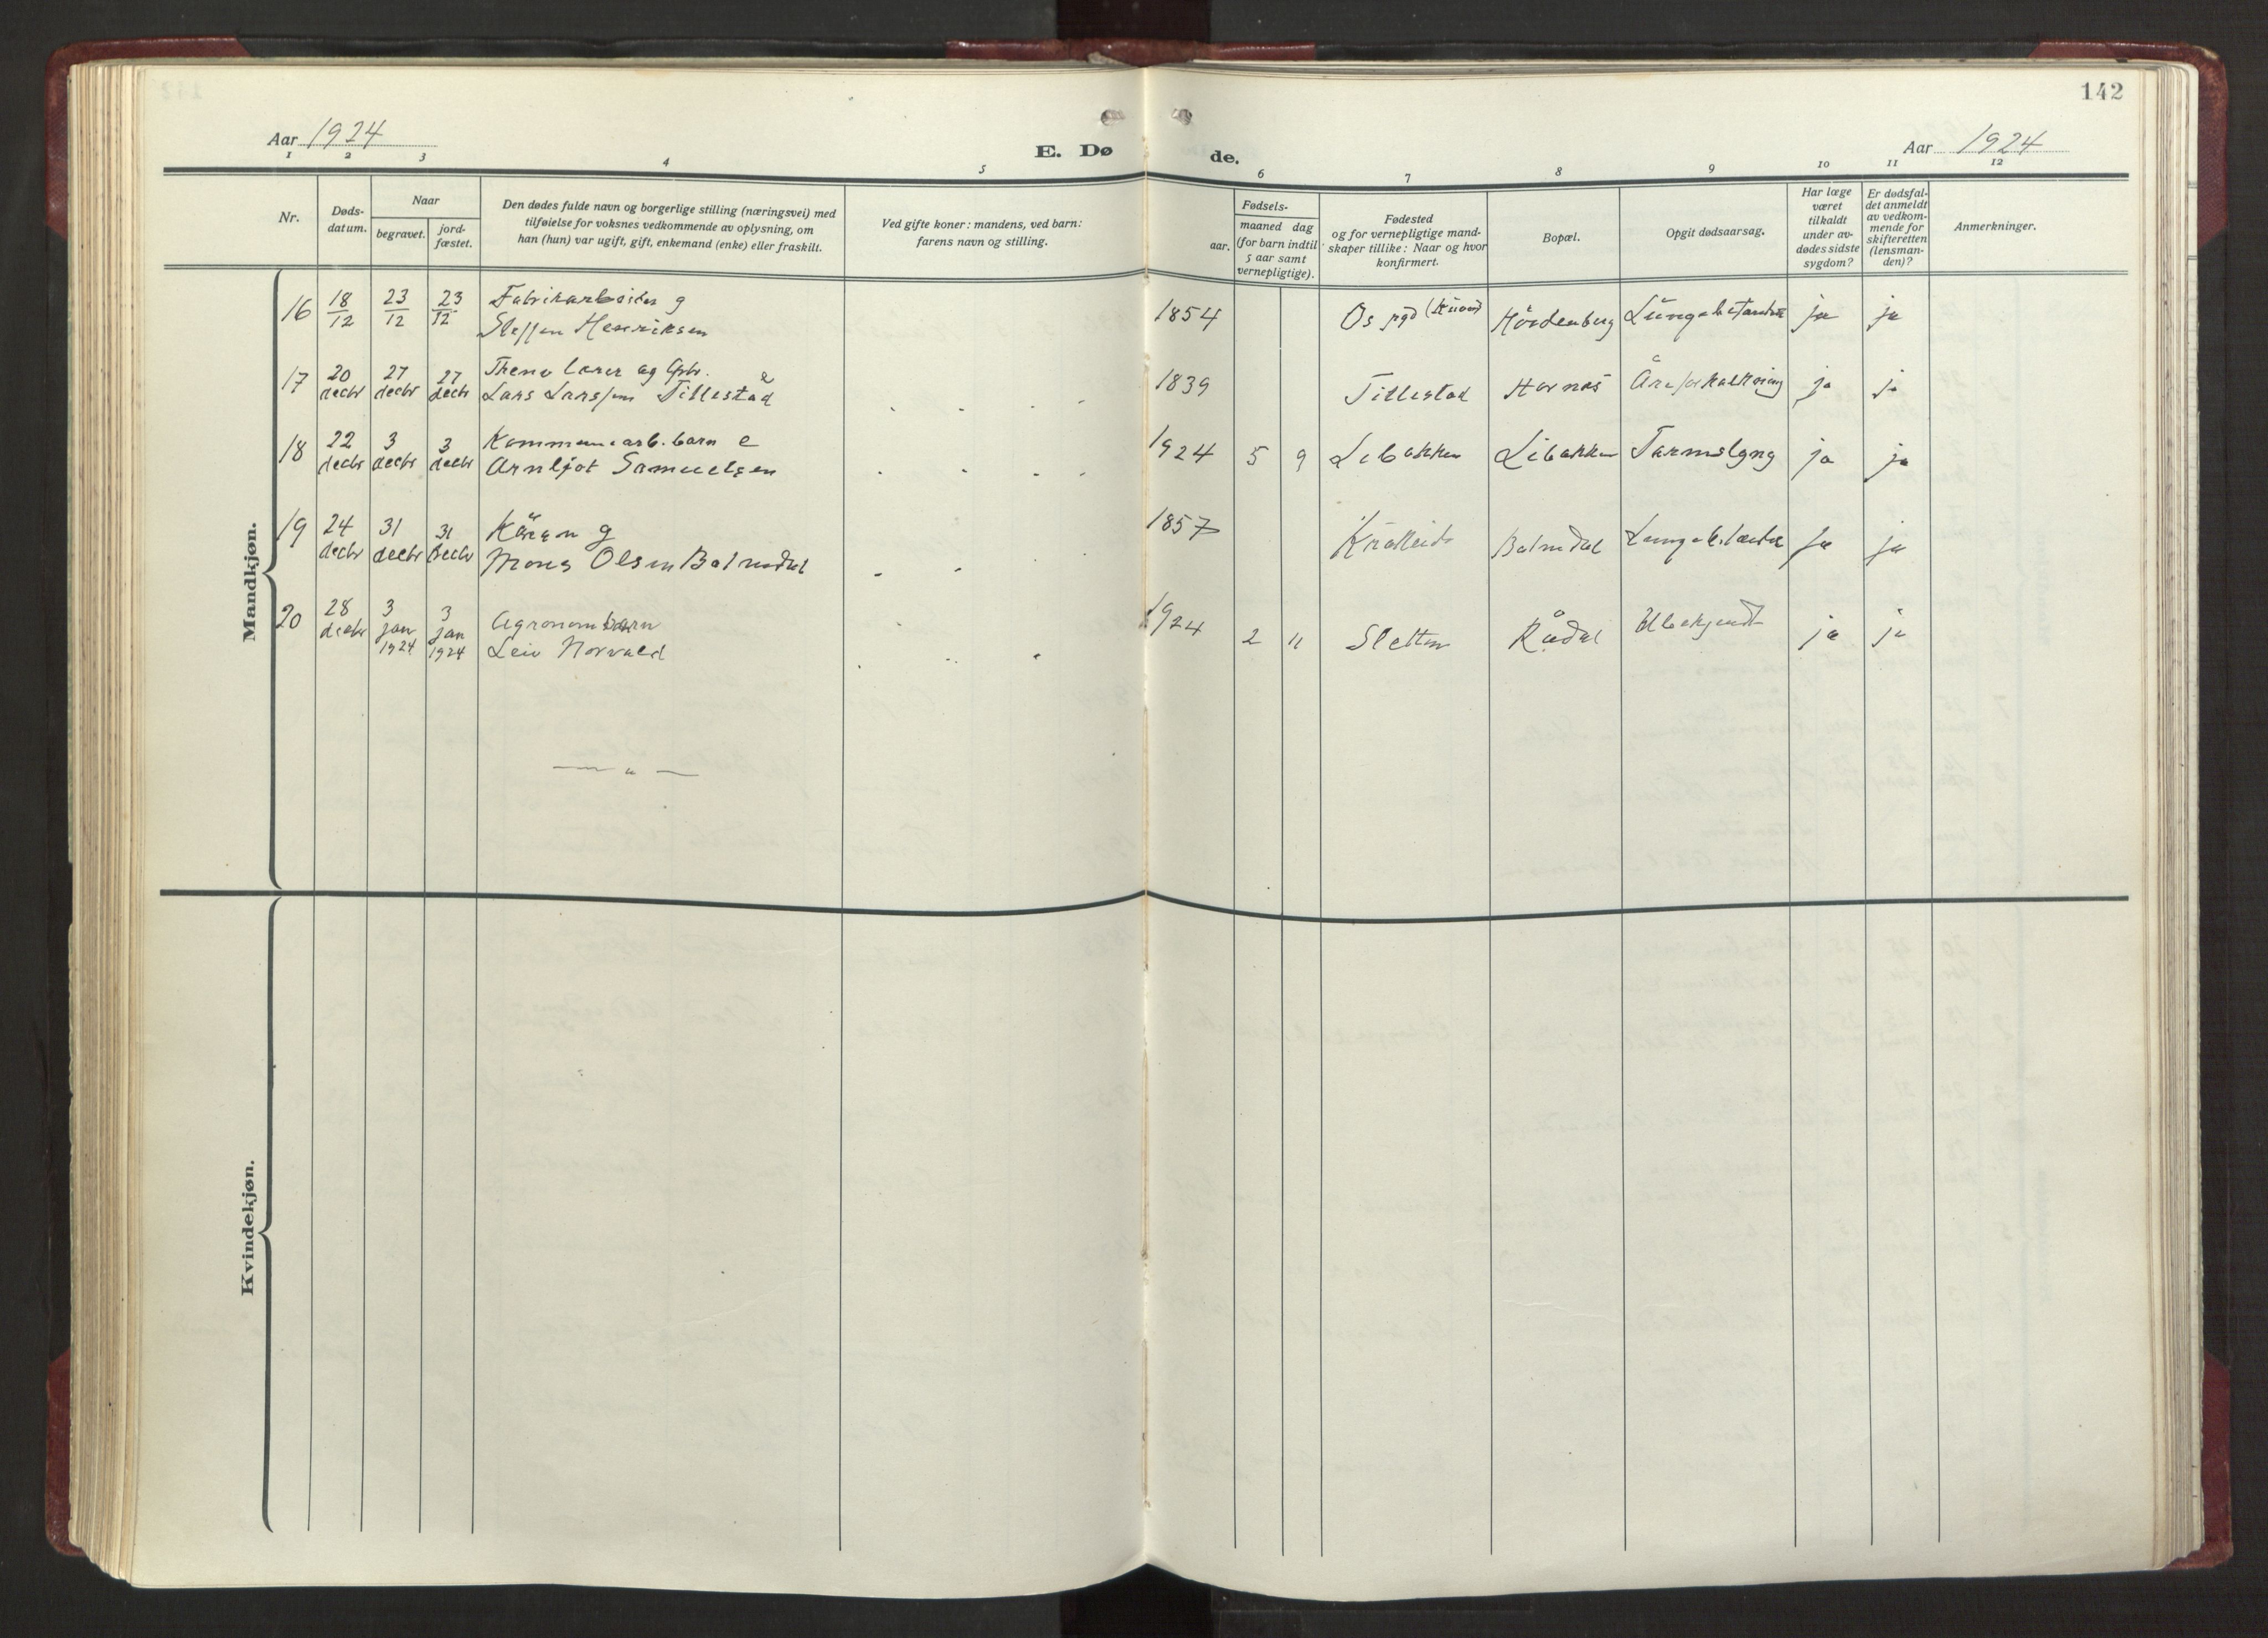 142
Aar 1924
E. Døde.
Aar 1924
1 2 3 4 5 6 7 8 9 10 11 12
Nr.
Døds-
datum.
Naar
begravet.
jord-
fæstet.
Den dødes fulde navn og borgerlige stilling (næringsvei) med
tilføielse for voksnes vedkommende av oplysning, om
han (hun) var ugift, gift, enkemand (enke) eller fraskilt.
Ved gifte koner: mandens, ved barn:
farens navn og stilling.
Fødsels-
aar.
maaned dag
(for barn indtil
5 aar samt
vernepligtige).
Fødested
og for vernepligtige mand-
skaper tillike: Naar og hvor
konfirmert.
Bopæl.
Opgit dødsaarsag.
Har læge
været
tilkaldt
under av-
dødes sidste
sygdom?
Er dødsfal-
det anmeldt
av vedkom-
mende for
skifteretten
(lensman-
den)?
Anmerkninger.
Mandkjøn.
16 18/12 23/12 23/12 Fabrikarbeider g
Steffen Henriksen
1854 Os pgd Hördenberg ja ja
17 20 decbr 27 decbr 27 decbr lærer og Gbr. e
Lars Larssen Tillestad
1839 Tillestad Hornes Åreforkalkning ja ja
18 22 decbr 3 decbr 3 decbr Kommunearb. barn e
Arnljot Samuelsen
1924 5 9 Libakken Libakken Tarmslyng ja ja
19 24 decbr 31 decbr 31 decbr g
Mons Olsen Botnedal
1857 Botnedal ja ja
20 28 decbr 3 jan 1924 3 jan 1924 Agronom barn
Leiv Norvald
1924 2 11 Sletten Rådal Ubekjendt ja ja
— " —
Kvindekjøn.